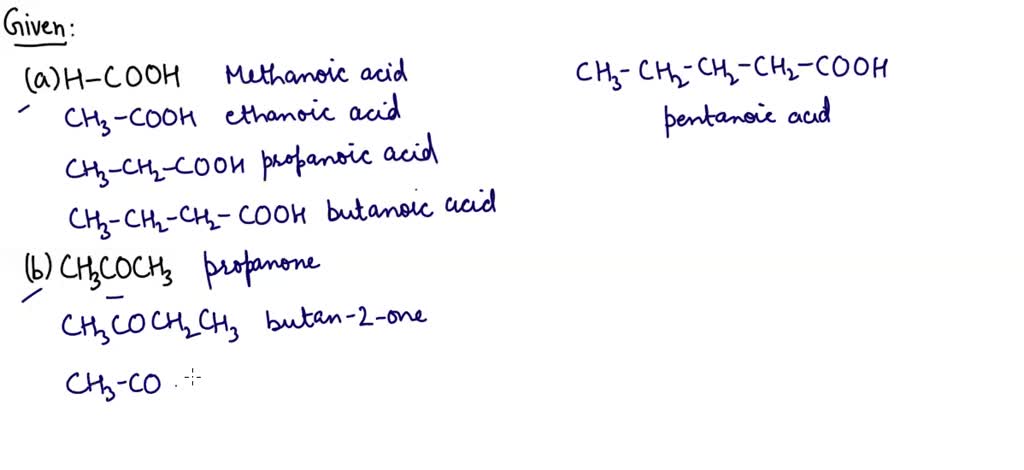 Given:
(a) H-COOH Methanoic acid
CH₃-COOH ethanoic acid
CH₃-CH₂-COOH propanoic acid
CH₃-CH₂-CH₂-COOH butanoic acid
CH₃-CH₂-CH₂-CH₂-COOH
pentanoic acid
(b) CH₃COCH₃ propanone
CH₃COCH₂CH₃ butan-2-one
CH₃-CO